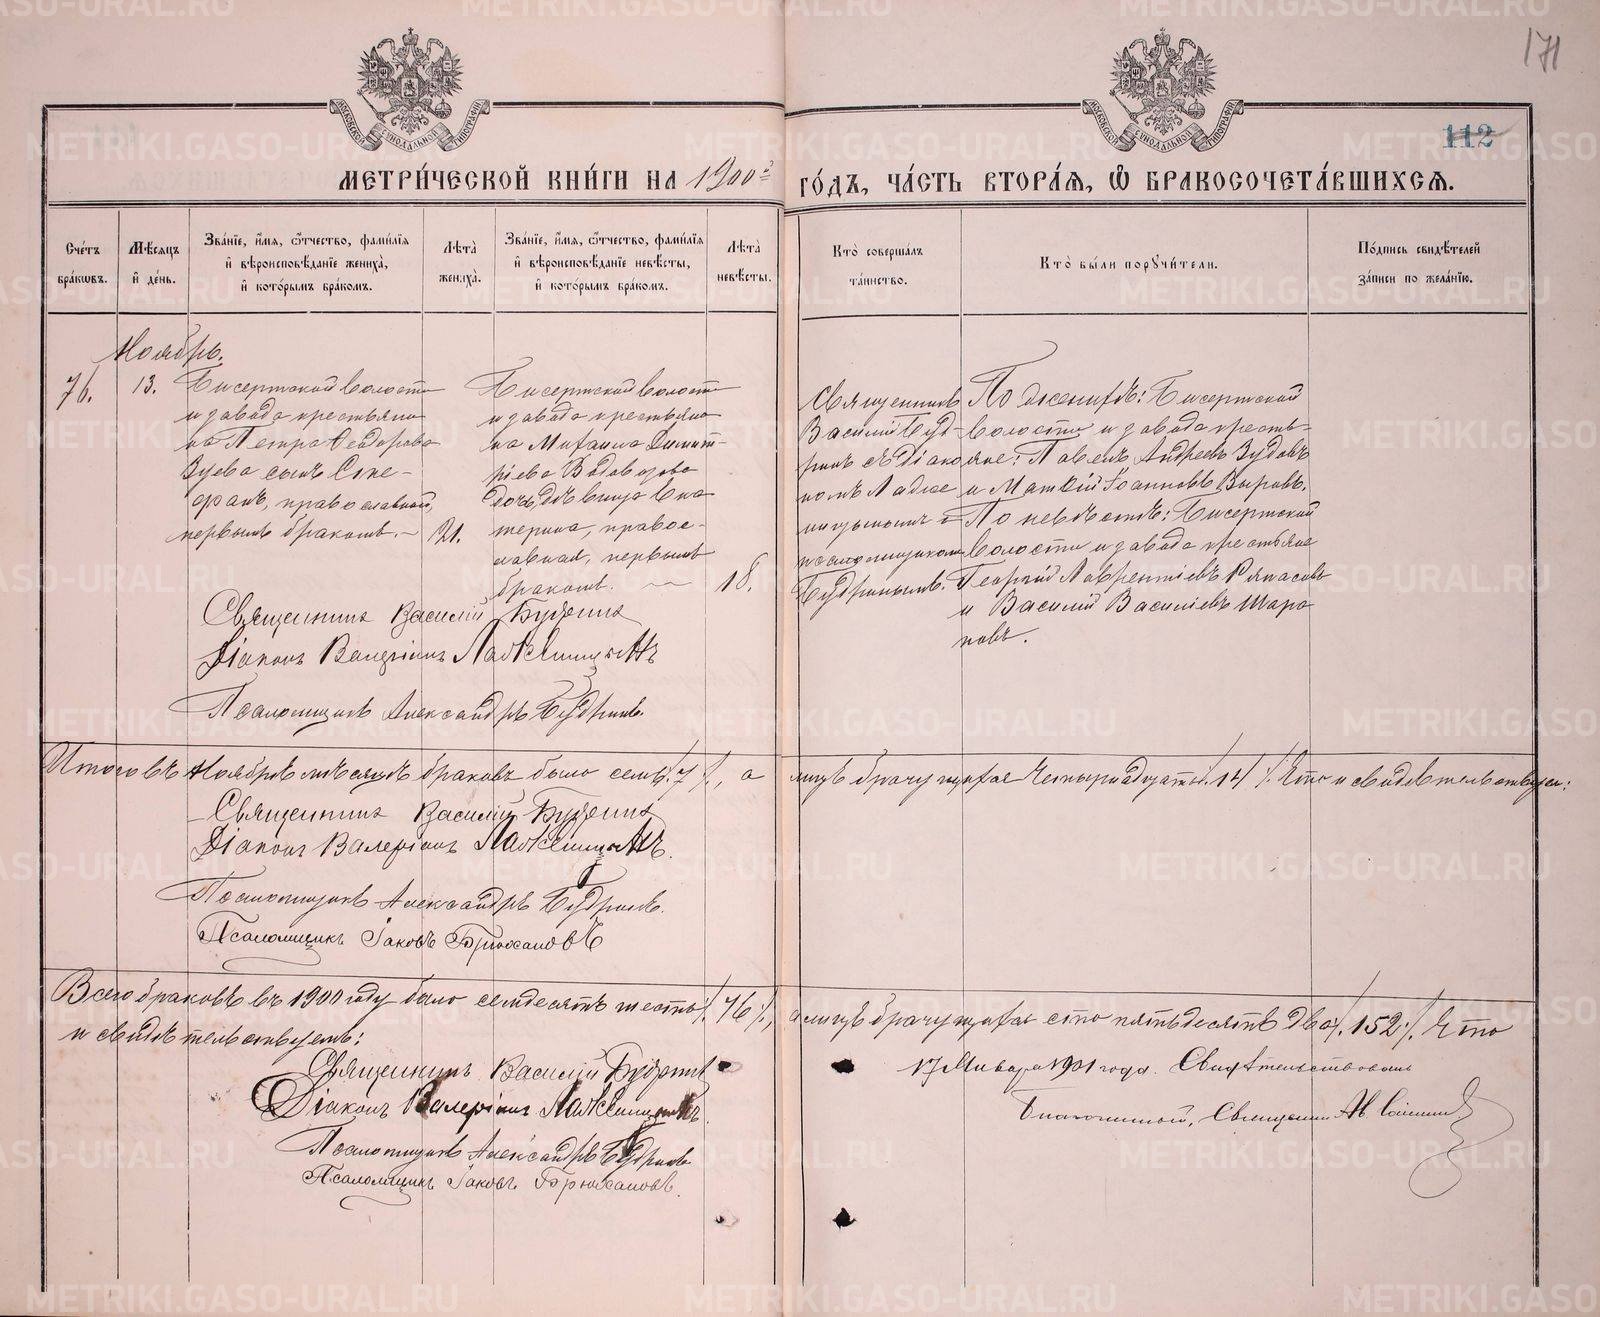 171
112
МОСКОВСКОЙ СѴНОДАЛЬНОЙ ТИПОГРАФІИ
МОСКОВСКОЙ СѴНОДАЛЬНОЙ ТИПОГРАФІИ
МЕТРИ́ЧЕСКОЙ КНИ́ГИ НА 1900й ГО́ДЪ, ЧА́СТЬ ВТОРА́Я, Ѡ БРАКОСОЧЕТА́ВШИХСЯ.
Сче́тъ бра́кѡвъ.
Мѣ́сяцъ и҆ де́нь.
Зва́нїе, и҆́мя, ѻ҆́тчество, фами́лїя и҆ вѣроисповѣ́данїе жениха̀, и҆ кото́рымъ бра́комъ.
Лѣ́та жениха̀.
Зва́нїе, и҆́мя, ѻ҆́тчество, фами́лїя и҆ вѣроисповѣ́данїе невѣ́сты, и҆ кото́рымъ бра́комъ.
Лѣ́та невѣ́сты.
Кто̀ соверша́лъ та́инство.
Кто̀ бы́ли порꙋчи́тели.
По́дпись свидѣ́телей за́писи по жела́нїю.
Ноябрь.
76.
13.
Бисертской волости
и завода крестьяни
на Петра Ѳедорова
Зуева сынъ Сте-
фанъ, православной,
первымъ бракомъ.
21.
Бисертской волости
и завода крестьяни
на Михаила Димит-
ріева Водовозова
дочь, дѣвица Ека
терина, правос-
лавная, первымъ
бракомъ.
18.
Священникъ
Василій Буд-
ринъ съ діако
номъ Ладже
ницкимъ и
псаломщикомъ
Будринымъ.
По женихѣ: Бисертской
волости и завода кресть-
яне: Павелъ Андреевъ Зудовъ
и Матѳій Іоанновъ Выровъ.
По невѣстѣ: Бисертской
волости и завода крестьяне
Георгій Лаврентіевъ Ряпасовъ
и Василій Василіевъ Шара
повъ.
Священникъ Василій Будринъ
Діаконъ Валеріанъ
Псаломщикъ Александръ Будринъ.
Итого въ Ноябрѣ мѣсяцѣ браковъ было семь /. 7 /., а лицъ брачущихся четырнадцать /. 14 /. Что и свидѣтельствуемъ:
Священникъ Василій Будринъ
Діаконъ Валеріанъ
Псаломщикъ Александръ Будринъ.
Псаломщикъ Іаковъ Брюхановъ
Всего браковъ въ 1900 году было семдесятъ шесть /. 76 /., а лицъ брачущихся сто пятьдесятъ два /. 152 /. Что
и свидѣтельствуемъ:
Священникъ Василій Будринъ
Діаконъ Валеріанъ
Псаломщикъ Александръ Будринъ
Псаломщикъ Іаковъ Брюхановъ.
17 Января 1901 года. Свидѣтельствовалъ
Благочинный, Священникъ
METRIKI.GASO-URAL.RU